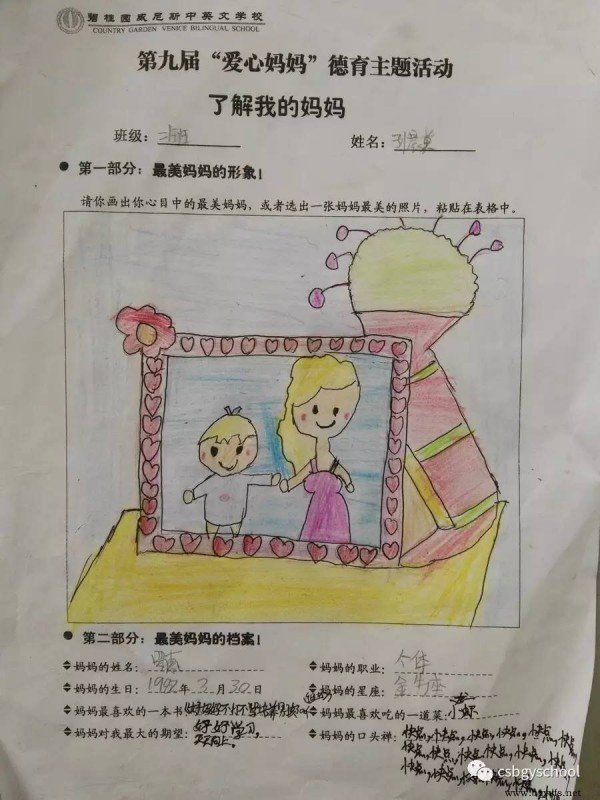 碧桂园威尼斯中英文学校
COUNTRY GARDEN VENICE BILINGUAL SCHOOL
第九届“爱心妈妈”德育主题活动
了解我的妈妈
班级:
姓名:
第一部分:最美妈妈的形象!
请你画出你心目中的最美妈妈,或者选出一张妈妈最美的照片,粘贴在表格中。
第二部分:最美妈妈的档案!
妈妈的姓名:
妈妈的职业:个体
妈妈的生日:1982年3月30日
妈妈的星座:金牛座
妈妈最喜欢的一本书:好妈妈不打不骂培养
妈妈最喜欢吃的一道菜:龙小虾
妈妈对我最大的期望:好好学习,天天向上。
妈妈的口头禅:快点,快点,快点,快点,快点,快点
csbgyschool